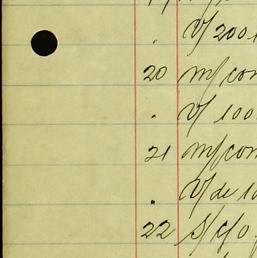 . V/ 200
20 m/con
. V/ 100
21 m/con
. V/ de 10
22 S/c/o.